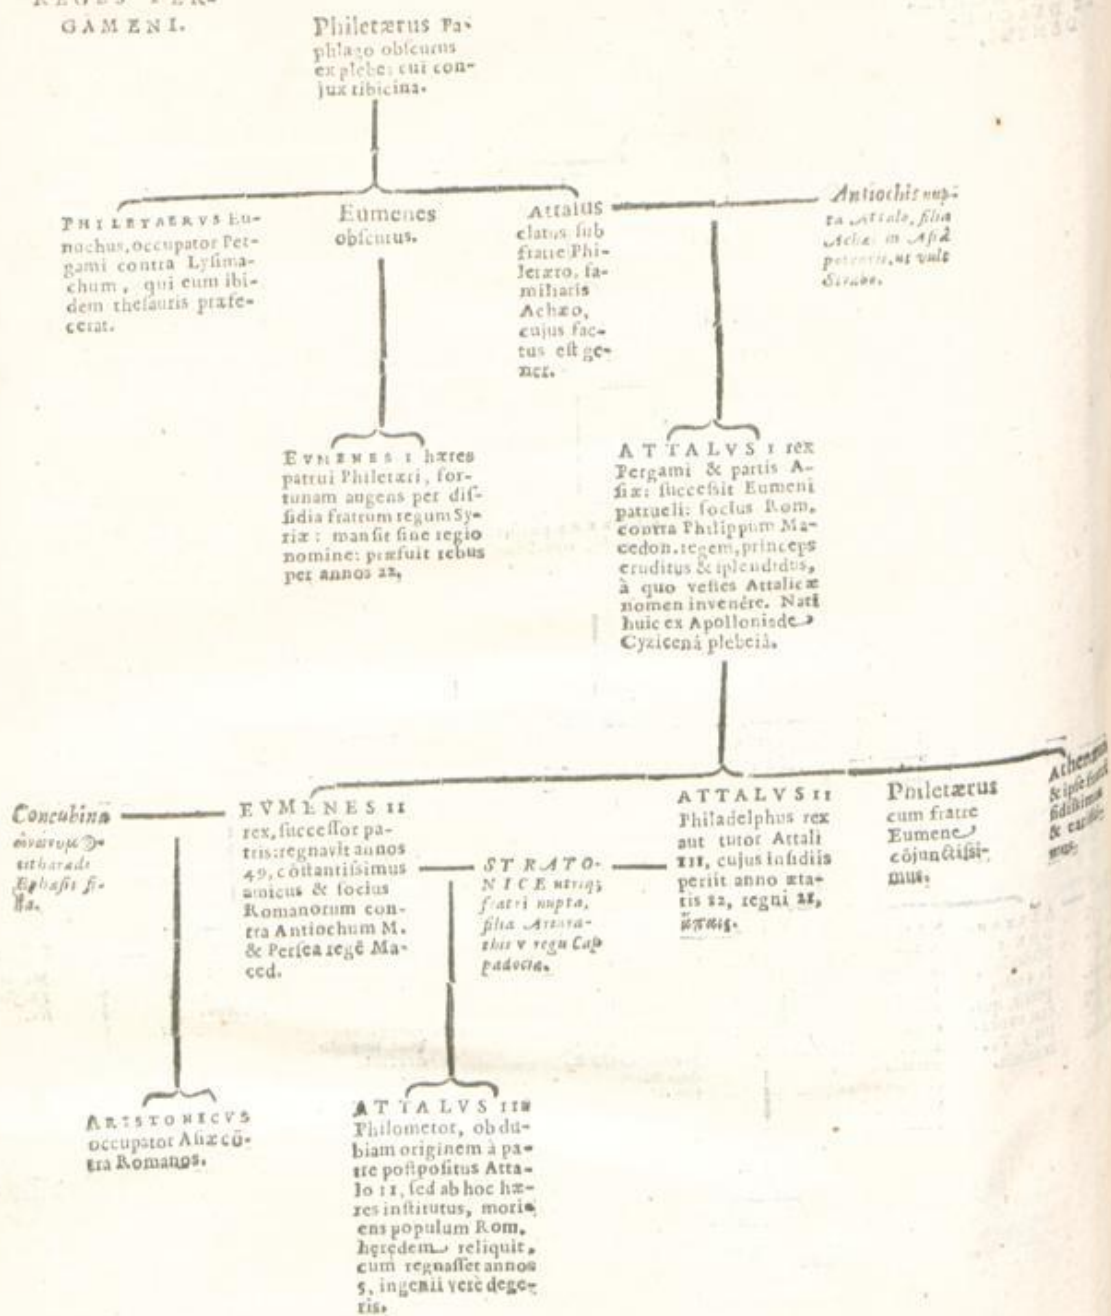 GAMENI.
Philetærus Pa-
phlago obſcurus
ex plebe: cui con-
jux tibicina.
PHILETAERVS Eu-
nuchus, occupator Per-
gami contra Lyſima-
chum, qui eum ibi-
dem theſauris præfe-
cerat.
Eumenes
obſcurus.
Attalus
elatus ſub
fratre Phi-
letæro, fa-
miliaris
Achæo,
cujus fac-
tus eſt ge-
ner.
Antiochis nup-
ta Attalo, filia
Achæi in Aſiâ
potentis, ut vult
Strabo.
EVMENES I hæres
patrui Philetæri, for-
tunam augens per diſ-
ſidia fratrum regum Sy-
riæ: manſit ſine regio
nomine: præfuit rebus
per annos 22,
ATTALVS I rex
Pergami & partis A-
ſiæ: ſucceſſit Eumeni
patrueli: ſocius Rom.
contra Philippum Ma-
cedon. regem, princeps
eruditus & ſplendidus,
à quo veſtes Attalicæ
nomen invenêre. Nati
huic ex Apollonide
Cyzicenâ plebeiâ.
Concubina
citharœdi
Epheſii fi-
lia.
EVMENES II
rex, ſucceſſor pa-
tris: regnavit annos
49, cōſtantiſſimus
amicus & ſocius
Romanorum con-
tra Antiochum M.
& Perſea regē Ma-
ced.
STRATO-
NICE utriq;
fratri nupta,
filia Ariara-
this v regis Cap
padociæ.
ATTALVS II
Philadelphus rex
aut tutor Attali
III, cujus inſidiis
periit anno æta-
tis 82, regni 21,
ἄπαις.
Philetærus
cum fratre
Eumene
cōjunctiſſi-
mus.
Athenæus
& ipſe
fidiſſimus
&
ARISTONICVS
occupator Aſiæ cō-
tra Romanos.
ATTALVS III
Philometor, ob du-
biam originem à pa-
tre poſtpoſitus Atta-
lo II, ſed ab hoc hæ-
res inſtitutus, mori-
ens populum Rom.
hęredem reliquit,
cum regnaſſet annos
5, ingenii verè dege-
ris.